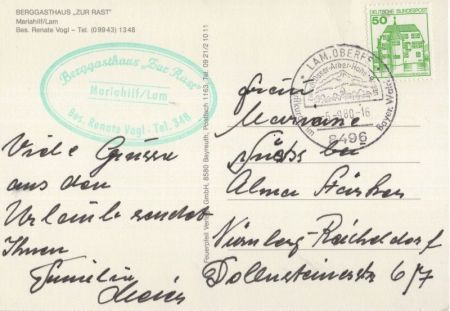 BERGGASTHAUS „ZUR RAST"
Mariahilf/Lam
Bes. Renate Vogl - Tel. (09943) 1348
Berggasthaus „Zur Rast"
Mariahilf/Lam
Bes. Renate Vogl - Tel. 348
Viele Grüsse
aus dem
Urlaub sendet
Ihnen
Familie
Feuerpfeil Verlags GmbH, 8580 Bayreuth, Postfach 1163, Tel. 09 21/2 10 11
50
DEUTSCHE BUNDESPOST
LAM, OBERPF
80-16
8496
Bayer. Wald
Frau
bei
Alma
Nürnberg-Reichelsdorf
6/7